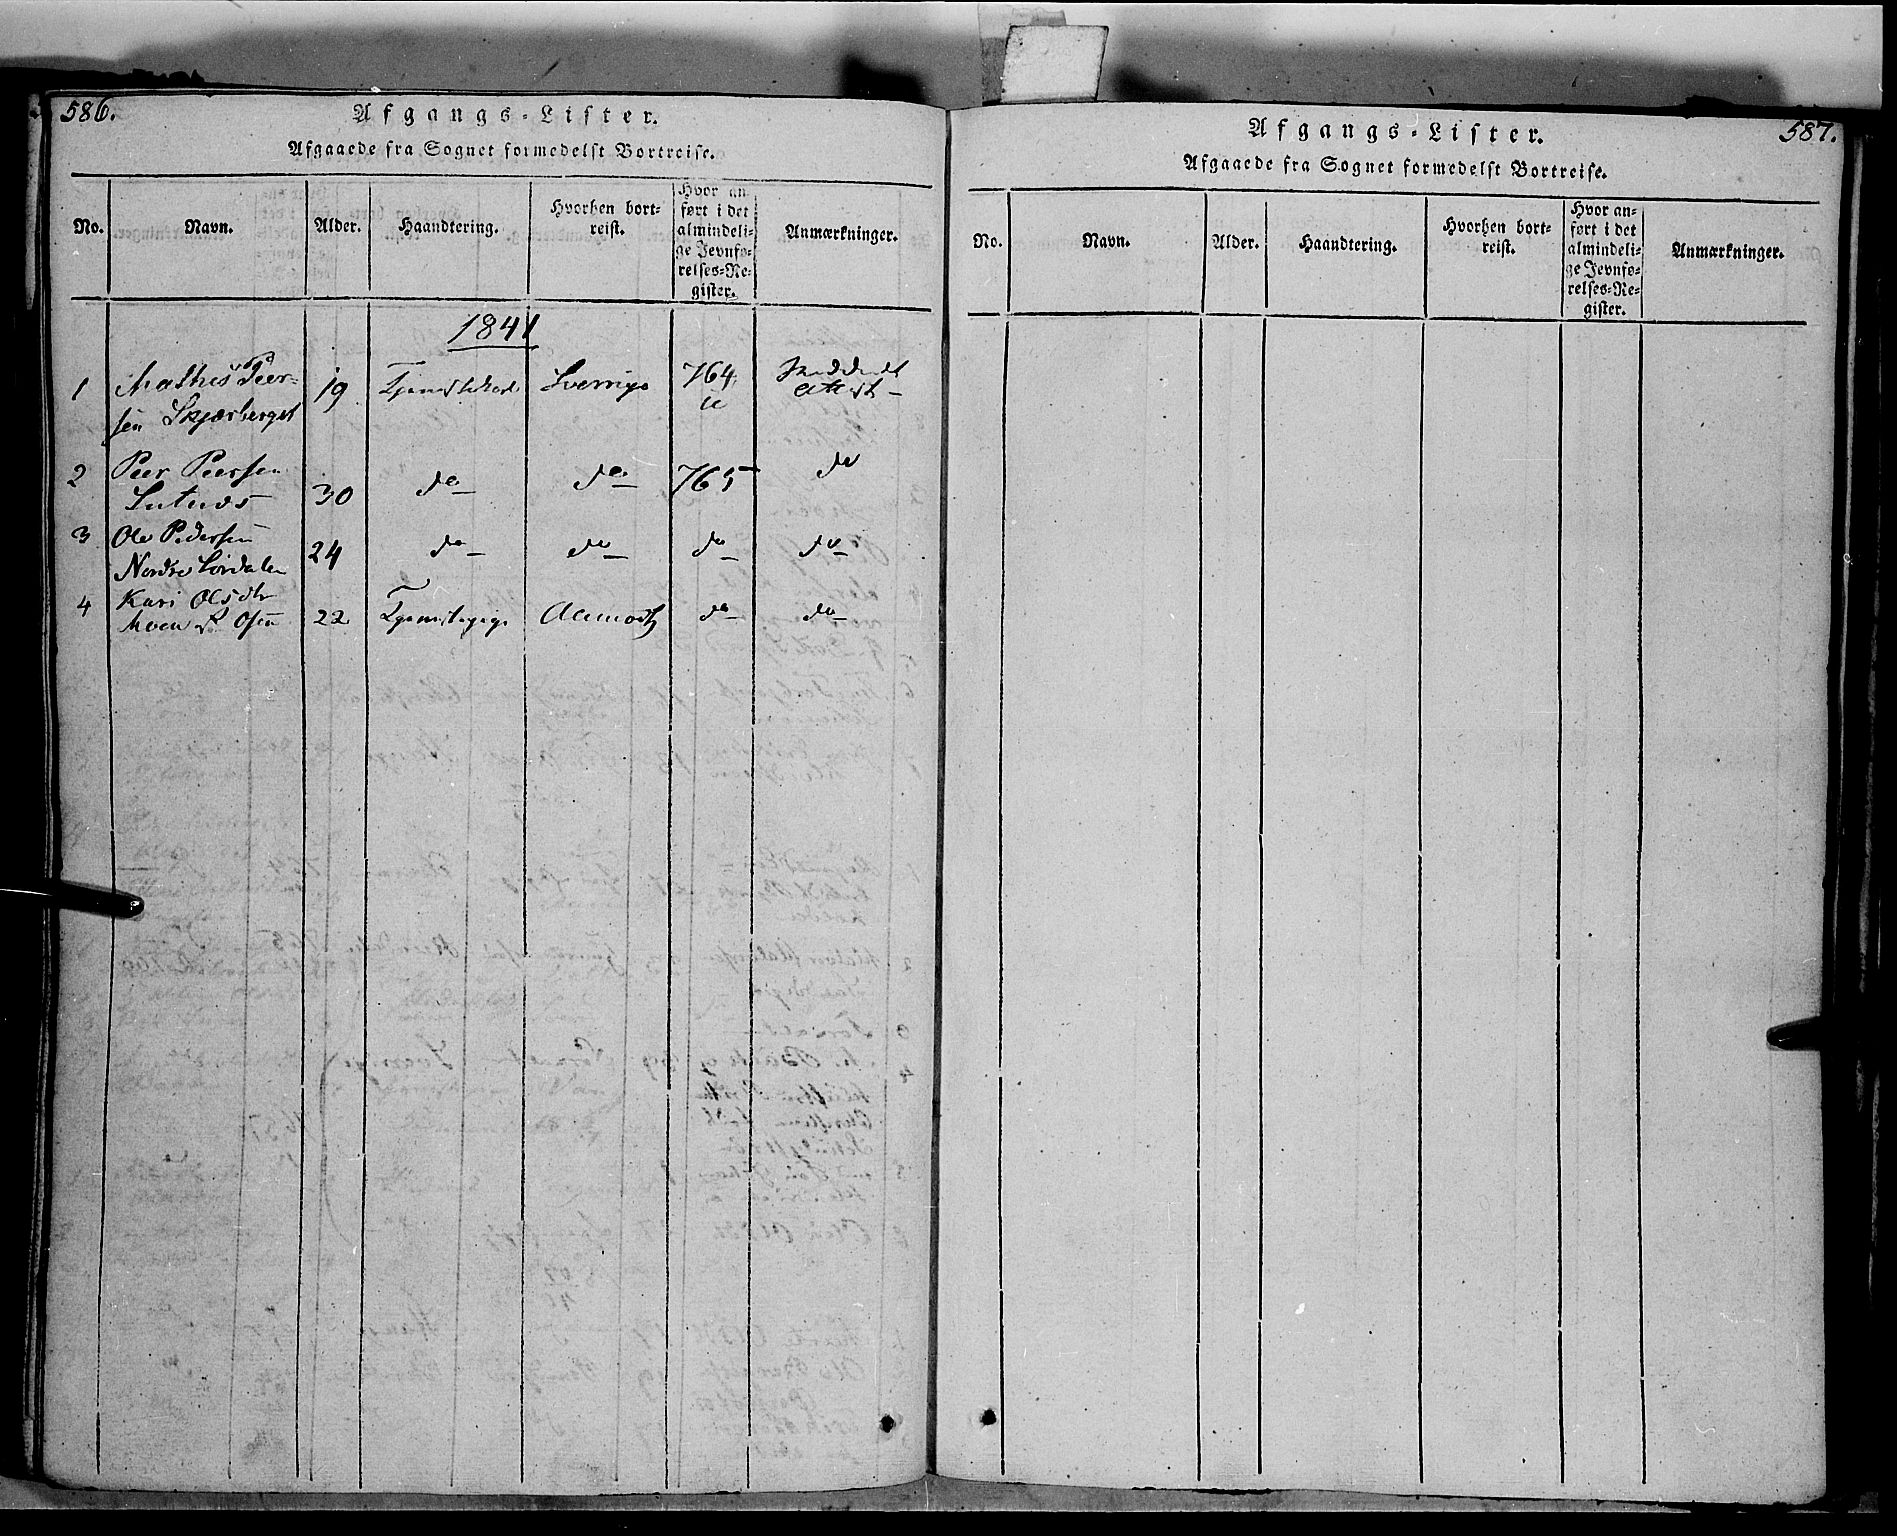 586.
Afgangs-Lister.
Afgaaede fra Sognet formedelst Bortreise.
No.
Navn.
Alder.
Haandtering.
Hvorhen bort-
reist.
Hvor an-
ført i det
almindeli-
ge Jevnfø-
relses-Re-
gister.
Anmærkninger.
1841
1
Mathis Peer-
sen Skjærberget
19
Tjenestekarl
Sverrige
764
attest
2
Peer Peersen
30
do
do
765
do
3
Ole Pedersen
Nordre Sørdalen
24
do
do
do
do
4
Kari Olsdtr
Moen Osen
22
Tjenestepige
Aamodt
do
do
587.
Afgangs-Lister.
Afgaaede fra Sognet formedelst Bortreise.
No.
Navn.
Alder.
Haandtering.
Hvorhen bort-
reist.
Hvor an-
ført i det
almindeli-
ge Jevnfø-
relses-Re-
gister.
Anmærkninger.